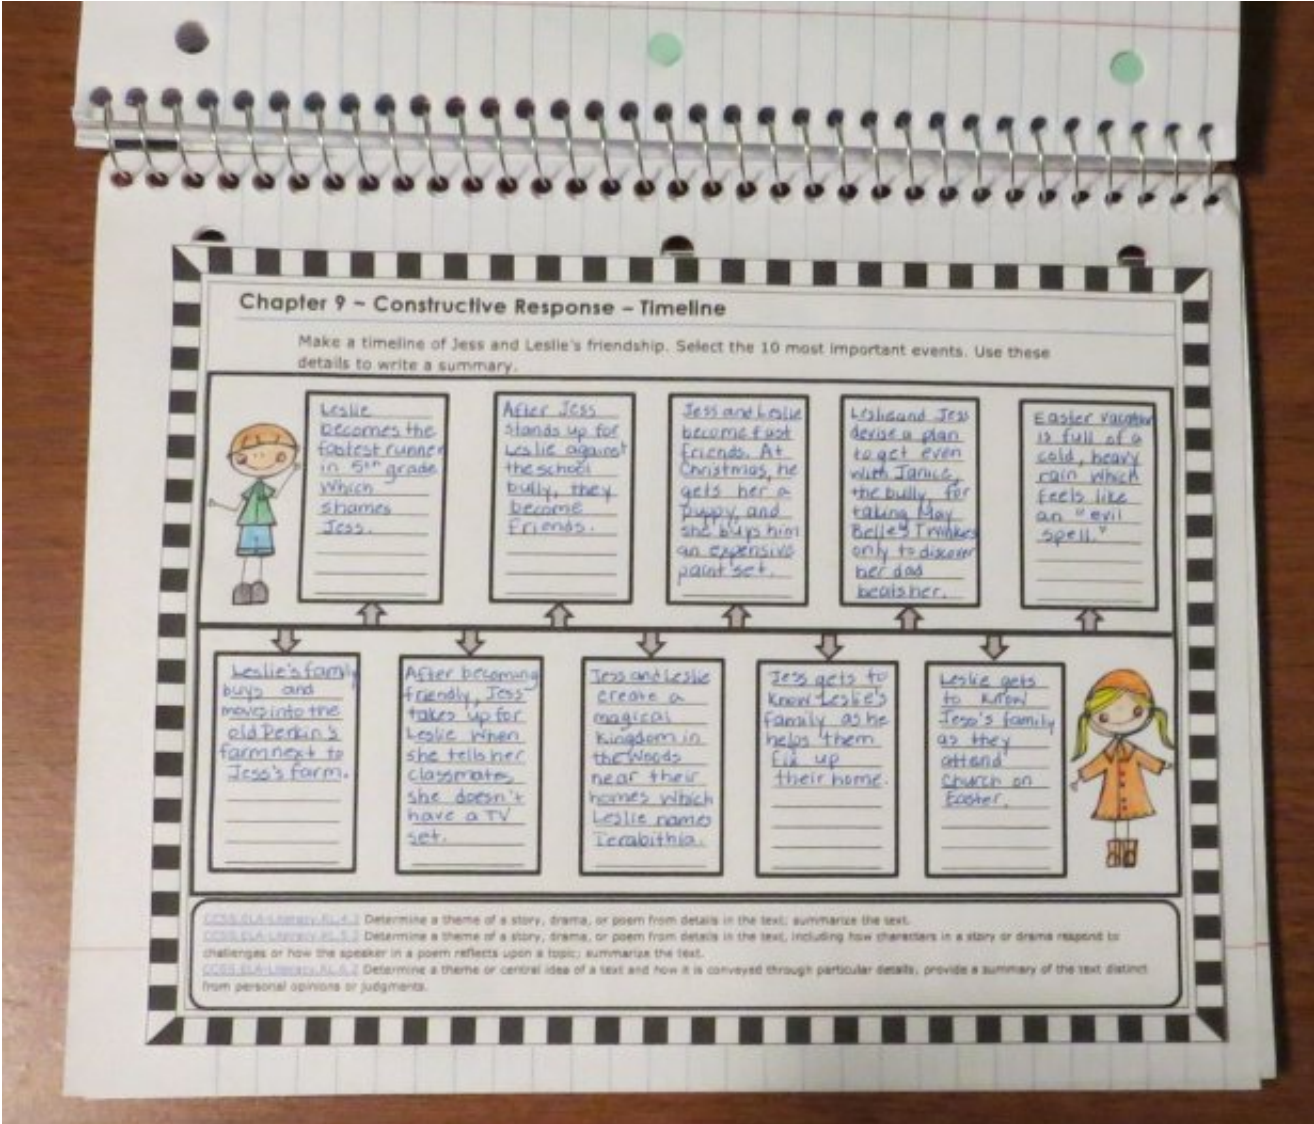 Chapter 9 ~ Constructive Response – Timeline
Make a timeline of Jess and Leslie's friendship. Select the 10 most important events. Use these
details to write a summary.
Leslie
becomes the
fastest runner
in 5th grade
which
shames
Jess.
After Jess
stands up for
Leslie against
the school
bully, they
become
friends.
Jess and Leslie
become fast
friends. At
Christmas, he
gets her a
puppy, and
she buys him
an expensive
paint set.
Leslie and Jess
devise a plan
to get even
with Janice,
the bully, for
taking May
Belle's Twinkies
only to discover
her dad
beats her.
Easter vacation
is full of a
cold, heavy
rain which
feels like
an "evil
spell."
Leslie's family
buys and
moves into the
old Perkin's
farm next to
Jess's farm.
After becoming
friendly, Jess
takes up for
Leslie when
she tells her
classmates
she doesn't
have a TV
set.
Jess and Leslie
create a
magical
Kingdom in
the Woods
near their
homes which
Leslie names
Terabithia.
Jess gets to
know Leslie's
family as he
helps them
fix up
their home.
Leslie gets
to know
Jess's family
as they
attend
church on
Easter.
CCSS.ELA-Literacy.RL.4.2 Determine a theme of a story, drama, or poem from details in the text; summarize the text.
CCSS.ELA-Literacy.RL.5.2 Determine a theme of a story, drama, or poem from details in the text, including how characters in a story or drama respond to
challenges or how the speaker in a poem reflects upon a topic; summarize the text.
CCSS.ELA-Literacy.RL.6.2 Determine a theme or central idea of a text and how it is conveyed through particular details, provide a summary of the text distinct
from personal opinions or judgments.